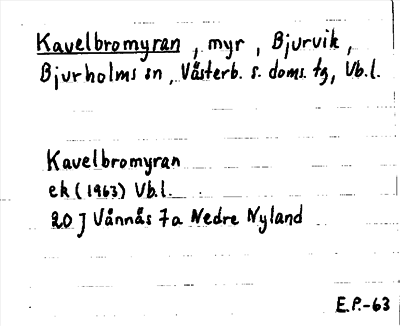 Kavelbromyran, myr, Bjurvik,
Bjurholms sn, Västerb. s. doms. tg, Vb.l.
Kavelbromyran
ek (1963) Vb.l.
20 J Vännäs 7a Nedre Nyland
E.P.-63